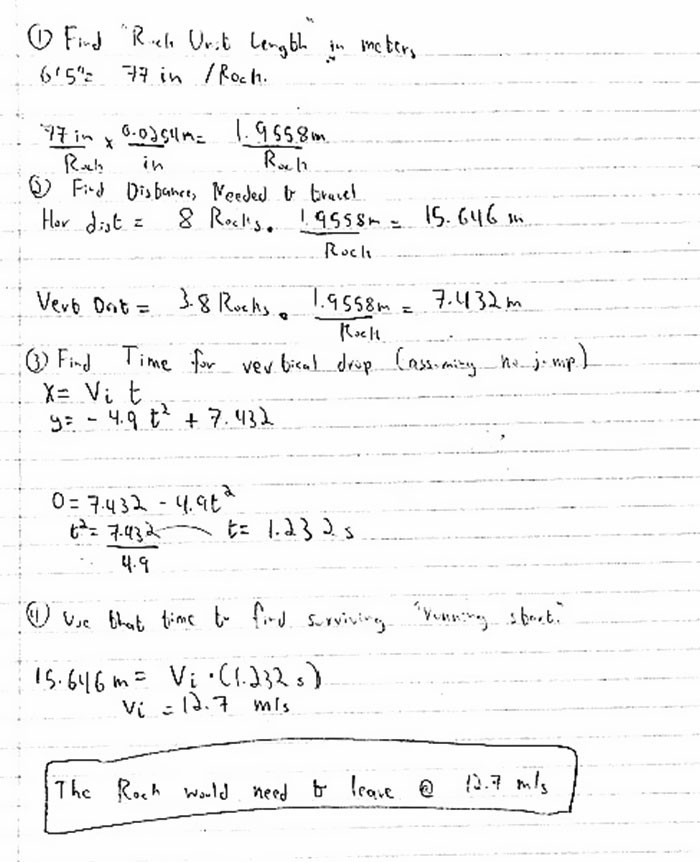 ① Find "Rock Unit Length" in meters
6'5"= 77 in /Rock.
77 in x 0.0254m = 1.9558m
Rock in Rock
② Find Distances Needed to travel
Hor dist = 8 Rocks . 1.9558m = 15.646 m
Rock
Vert Dist = 3.8 Rocks . 1.9558m = 7.432m
Rock
③ Find Time for vertical drop (assuming no jump)
x= Vi t
y= - 4.9 t² + 7.432
0 = 7.432 - 4.9t²
t² = 7.432 t= 1.232 s
4.9
④ Use that time to find surviving "running start."
15.646 m = Vi · (1.232 s)
Vi = 12.7 m/s
The Rock would need to leave @ 12.7 m/s